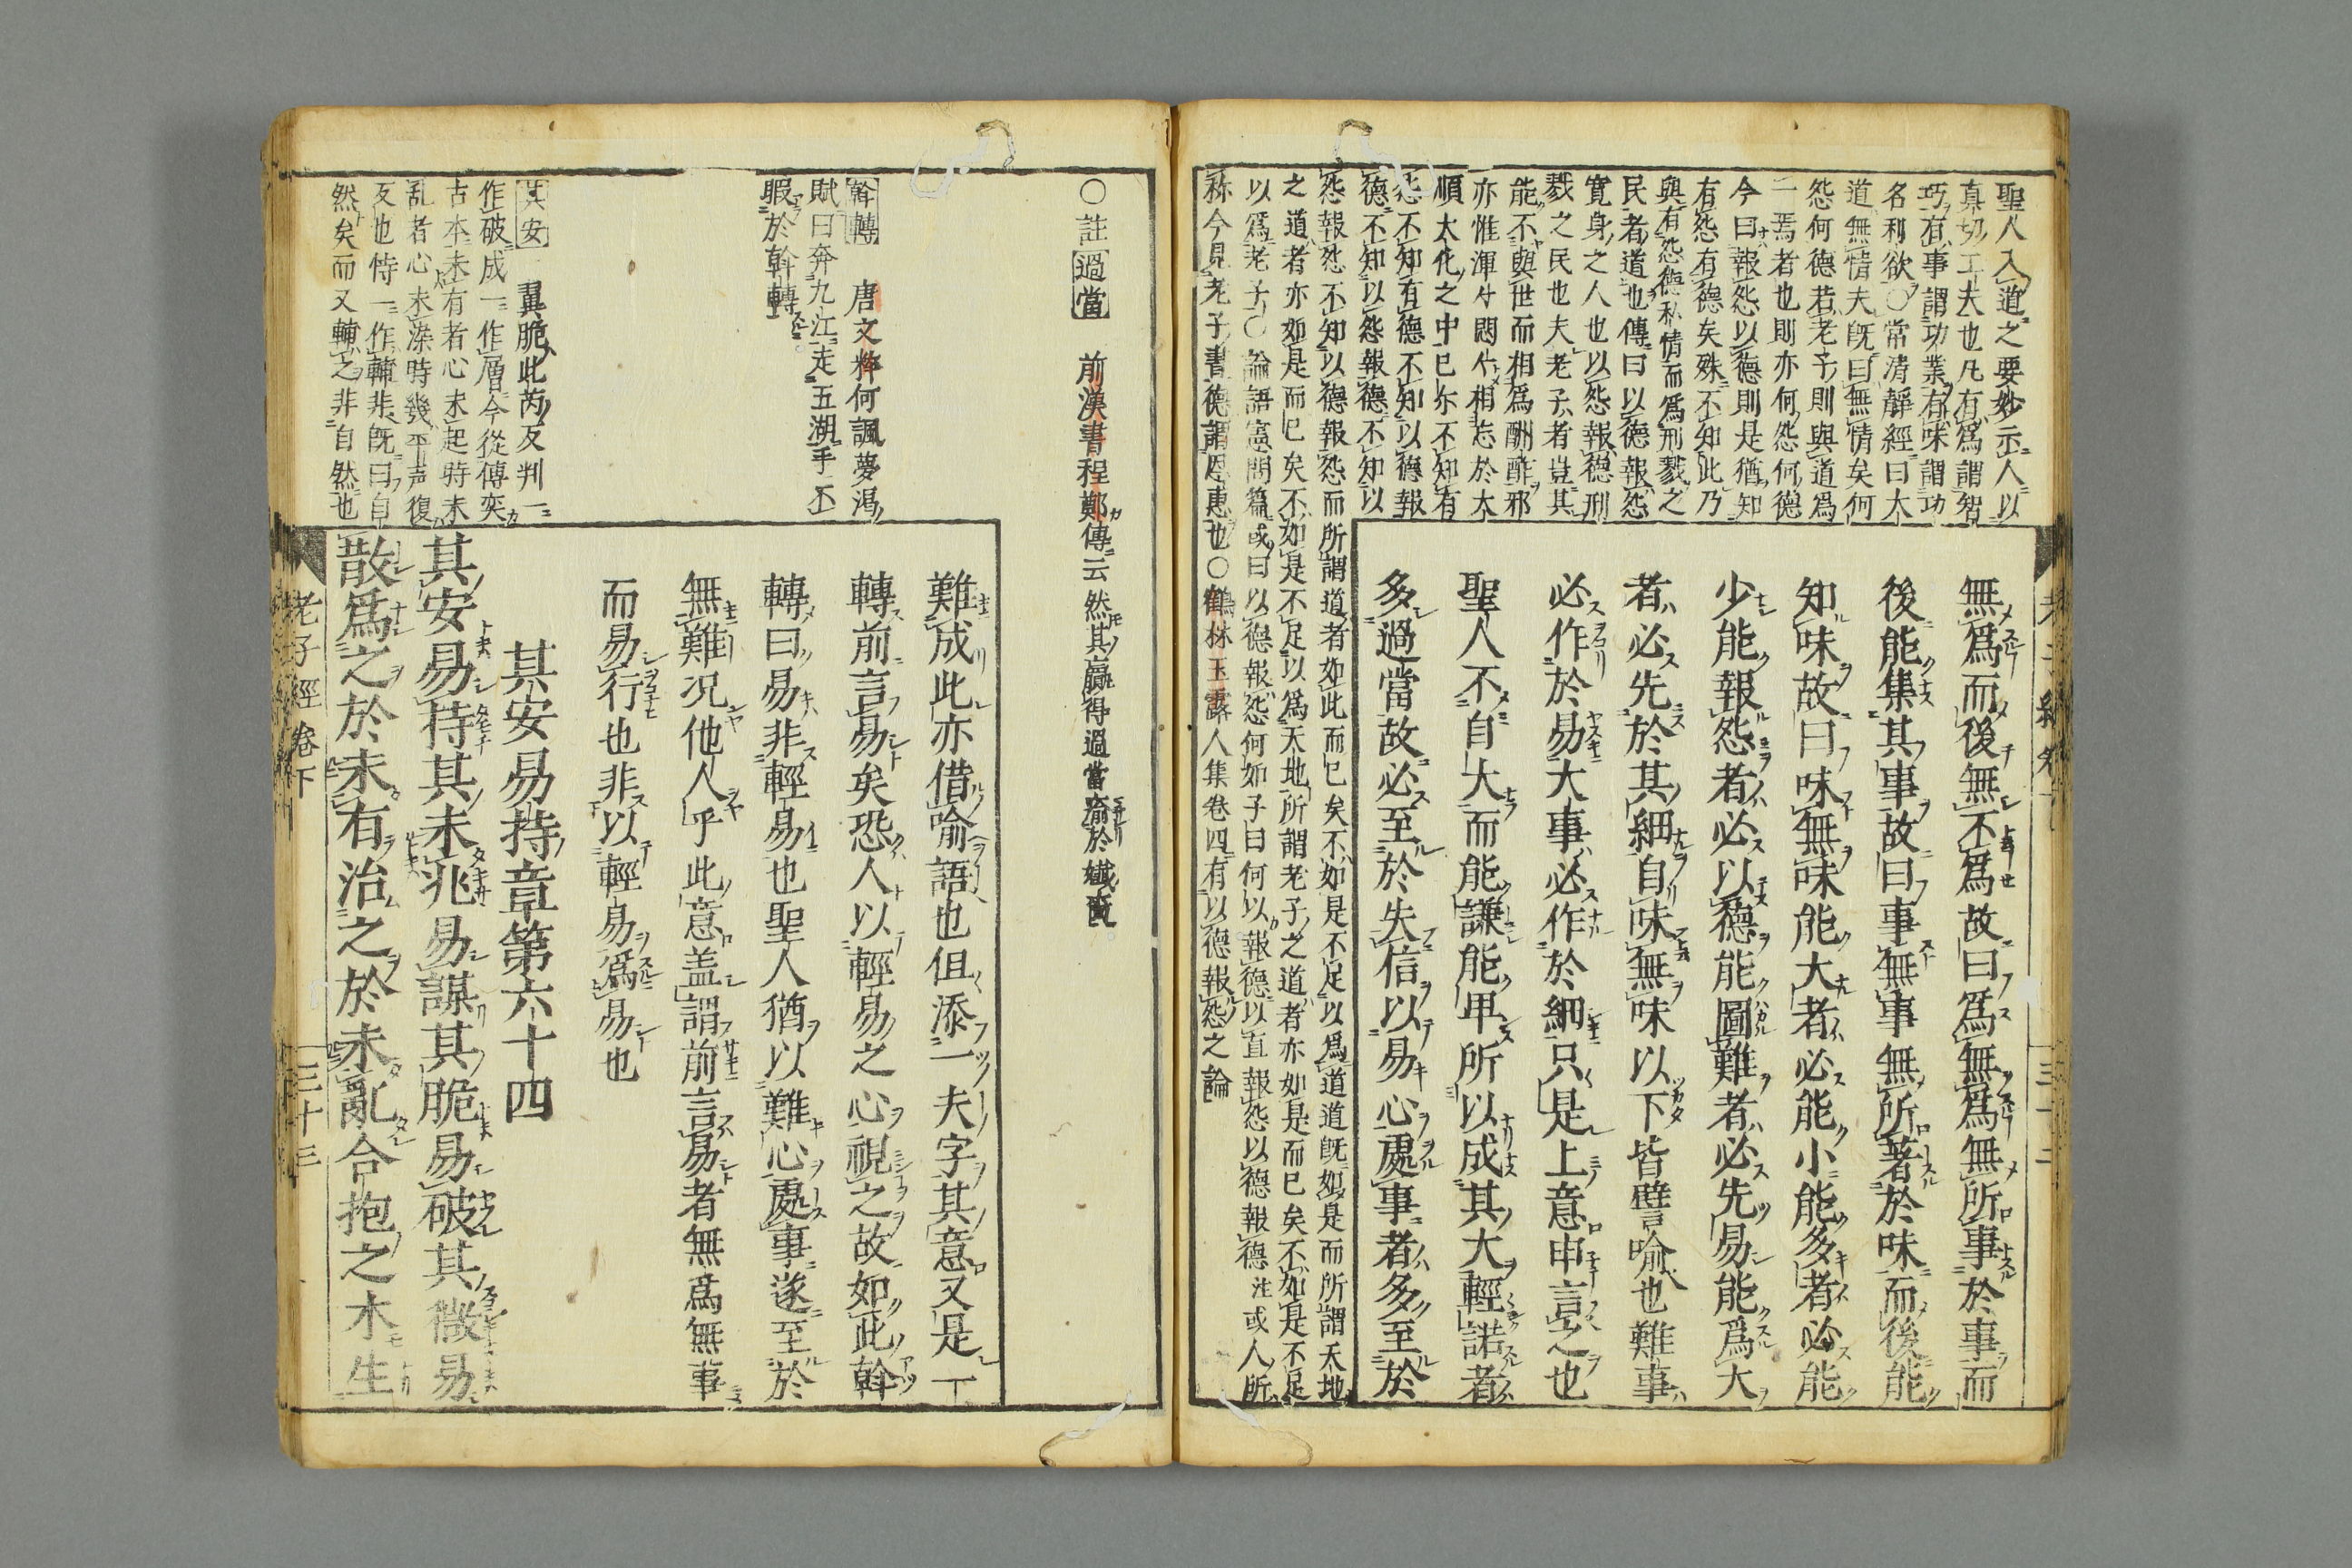 聖人入道之要妙示人以
真切工夫也凡有爲謂智
巧有事謂功業有味謂功
名利欲○常清靜經曰大
道無情夫既曰無情矣何
怨何德若老子則與道爲
一焉者也則亦何怨何德
今曰報怨以德則是猶知
有怨有德矣殊不知此乃
與有怨德私情而爲刑戮之
民者道也傳曰以德報怨
寬身之人也以怨報德刑
戮之民也夫老子者豈其
能不與世而相爲酬酢邪
亦惟渾々悶々相忘於大
順大化之中已尓不知有
怨不知有德不知以德報
德不知以怨報德不知以
怨報怨不知以德報怨而所謂道者如此而已矣不如是不足以爲道道既如是而所謂天地
之道者亦如是而已矣不如是不足以爲天地所謂老子之道者亦如是而已矣不如是不足
以爲老子○論語憲問篇或曰以德報怨何如子曰何以報德以直報怨以德報德注或人所
称今見老子書德謂恩惠也○鶴林玉露人集卷四有以德報怨之論
無爲而後無不爲故曰爲無爲無所事於事而
後能集其事故曰事無事無所著於味而後能
知味故曰味無味能大者必能小能多者必能
少能報怨者必以德能圖難者必先易能爲大
者必先於其細自味無味以下皆譬喻也難事
必作於易大事必作於細只是上意申言之也
聖人不自大而能謙能卑所以成其大輕諾者
多過當故必至於失信以易心處事者多至於
○註過當 前漢書程鄭傳云然其贏得過當瘉於孅嗇
斡轉 唐文粹何諷夢渴
賦曰奔九江走五湖手不
暇於斡轉
難成此亦借喻語也但添一夫字其意又是一
轉前言易矣恐人以輕易之心視之故如此斡
轉曰易非輕易也聖人猶以難心處事遂至於
無難况他人乎此意盖謂前言易者無爲無事
而易行也非以輕易爲易也
其安 翼脆此芮反判一
作破成一作層今從傳奕
古本未有者心未起時未
乱者心未深時幾平声復
反也恃一作輔非既曰自
然矣而又輔之非自然也
其安易持章第六十四
其安易持其未兆易謀其脆易破其微易
散爲之於未有治之於未亂合抱之木生
老子經卷下
三十三